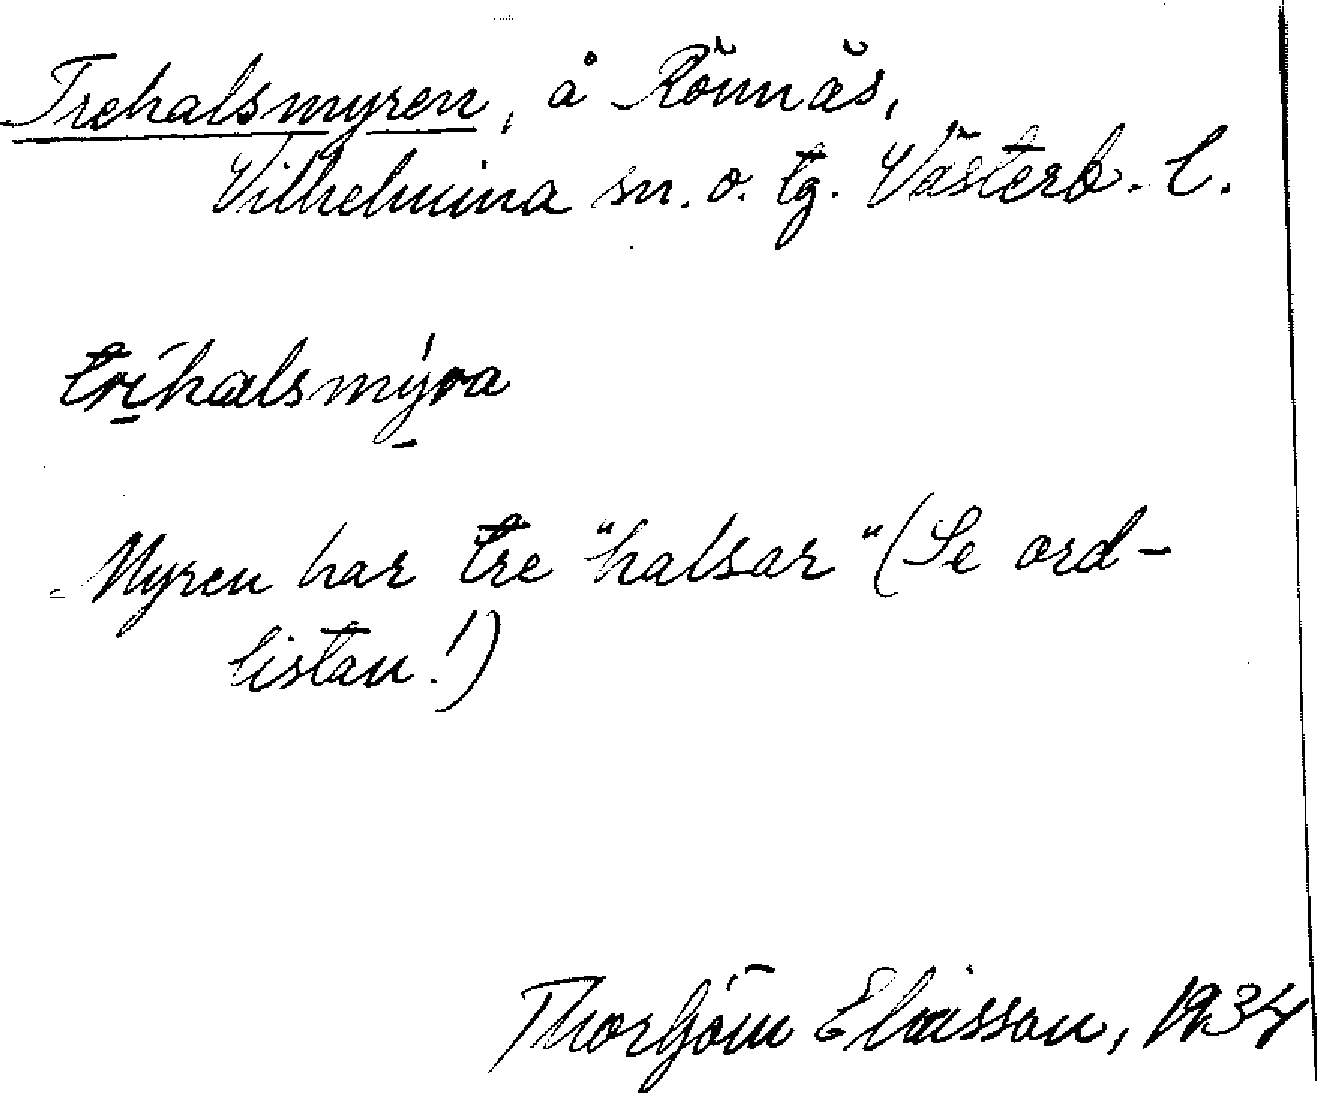 Trehalsmyren, å Rönnäs,
Vilhelmina sn. o. tg. Västerb. l.
tríhalsmýra
Myren har tre "halsar" (Se ord-
listan!)
Thorbjörn Eliasson, 1934